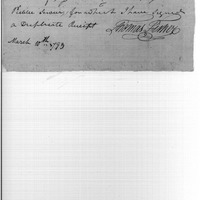 Public Service for which I have signed
a Duplicate Receipt
Thomas
March 10th 1793